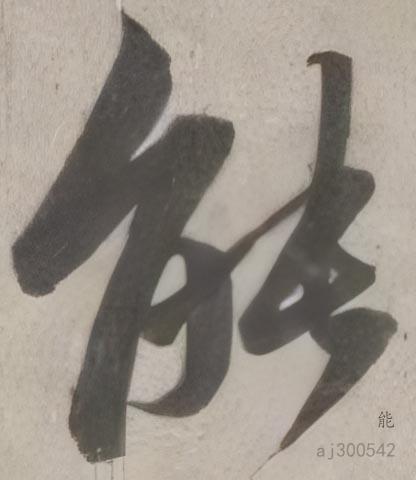 能
能
aj300542